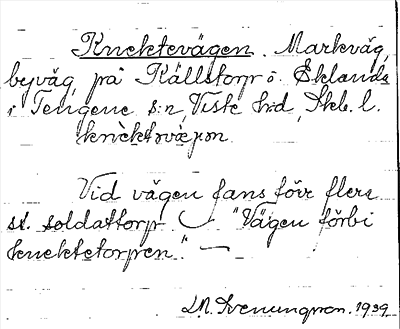 Knektevägen. Markväg,
byväg, på Källstorp o. Eklanda
i Tengene s:n, Viste h:d, Skb. l.
knèktəvæ̀gən
Vid vägen fans förr flera
st. soldattorp "Vägen förbi
knektetorpen." —
M. Svenungsson. 1939